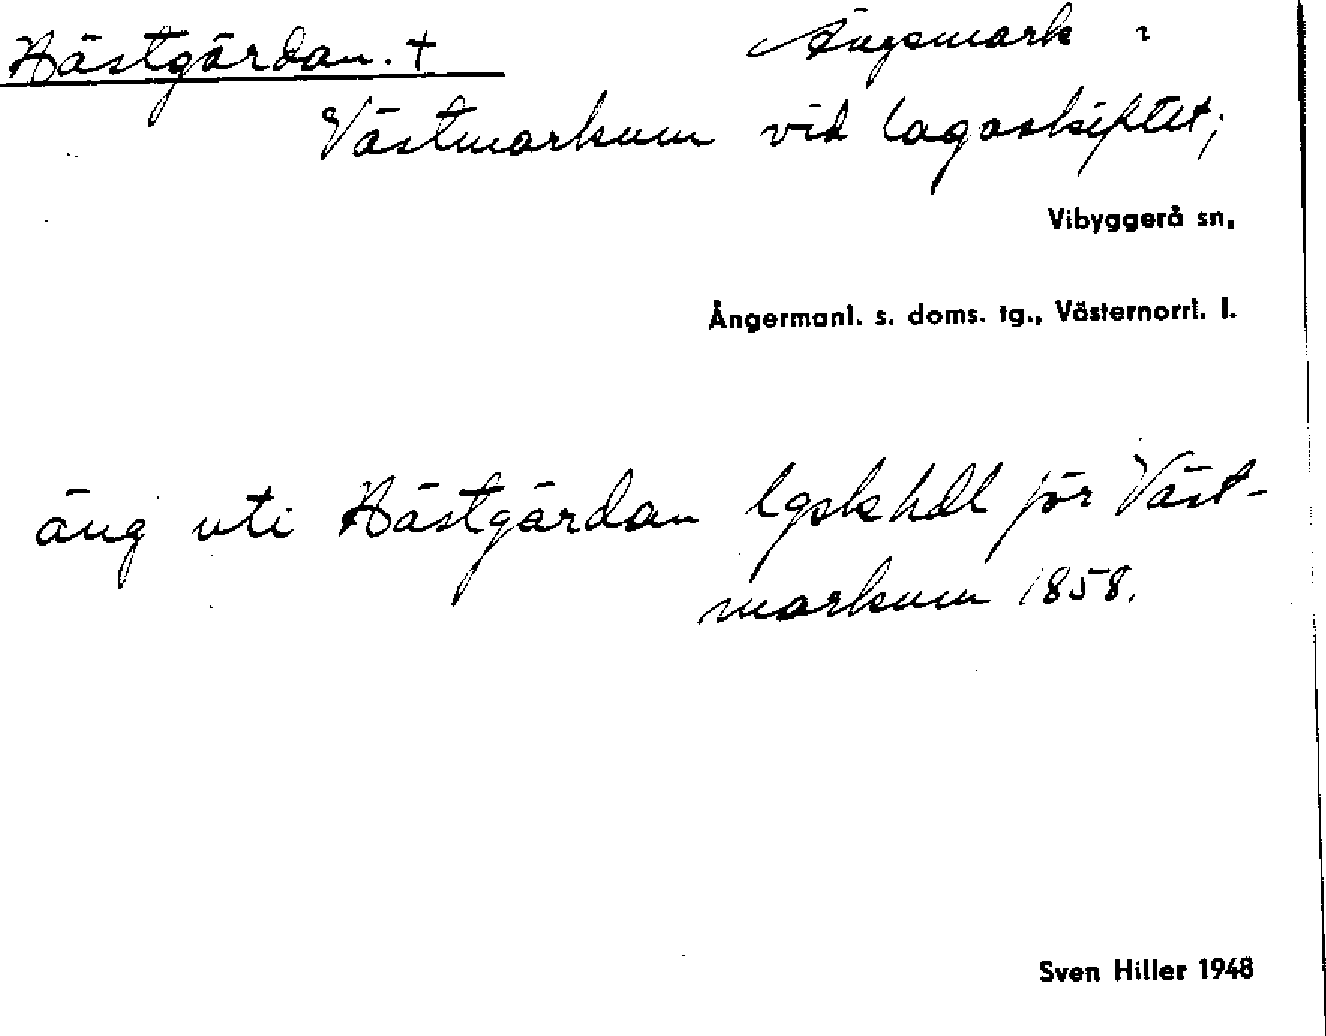 Hästgärdan. + Ängsmark i
Västmarkum vid lagaskiftet;
Vibyggerå sn,
Ångermanl. s. doms. tg., Västernorrl. l.
äng uti Hästgärdan lgskhdl för Väst-
markum 1858.
Sven Hiller 1948